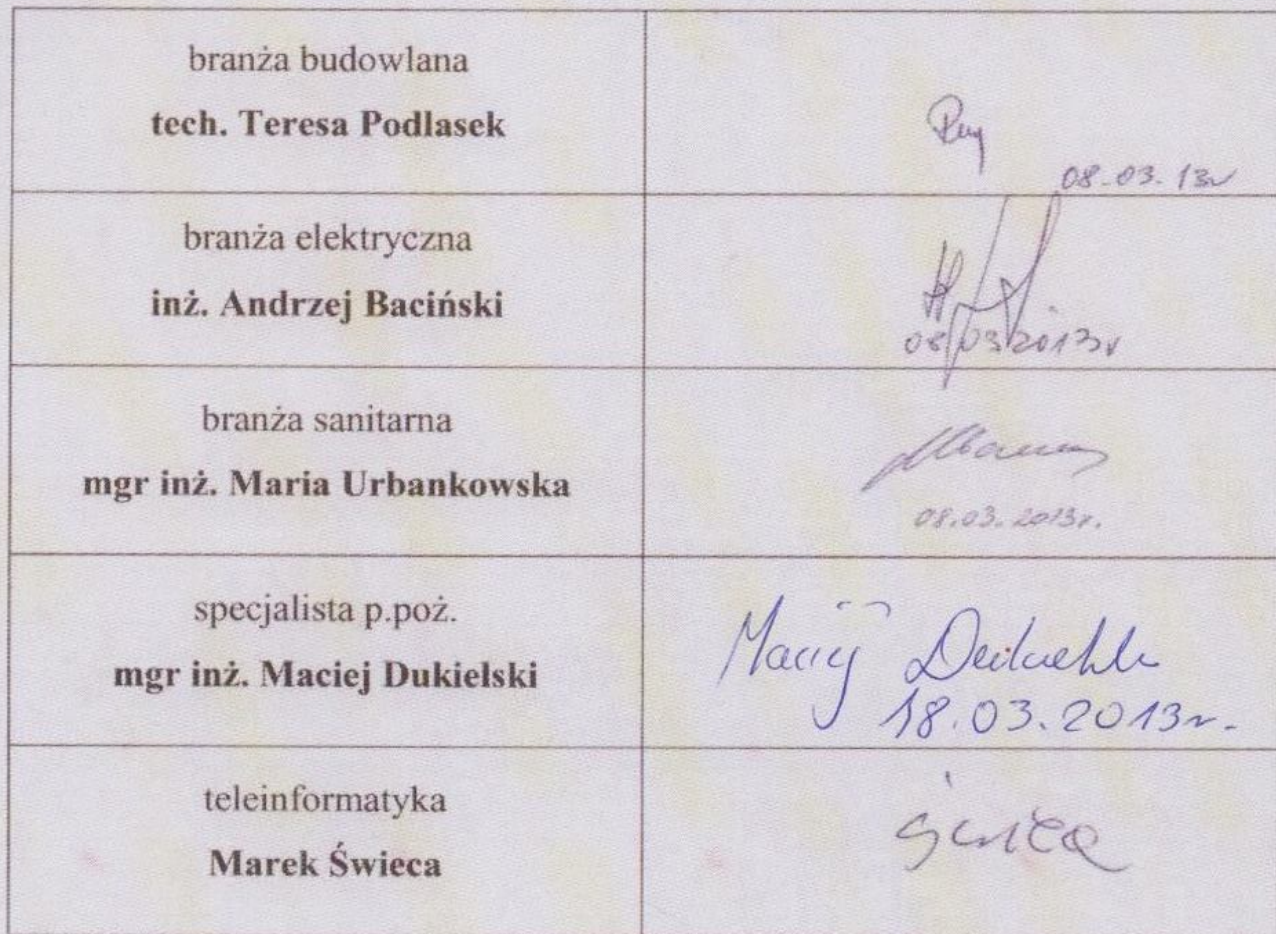 branża budowlana
tech. Teresa Podlasek
08-03-13r
branża elektryczna
inż. Andrzej Baciński
08/03/2013r
branża sanitarna
mgr inż. Maria Urbankowska
08.03.2013r.
specjalista p.poż.
mgr inż. Maciej Dukielski
Maciej
18.03.2013r.
teleinformatyka
Marek Świeca